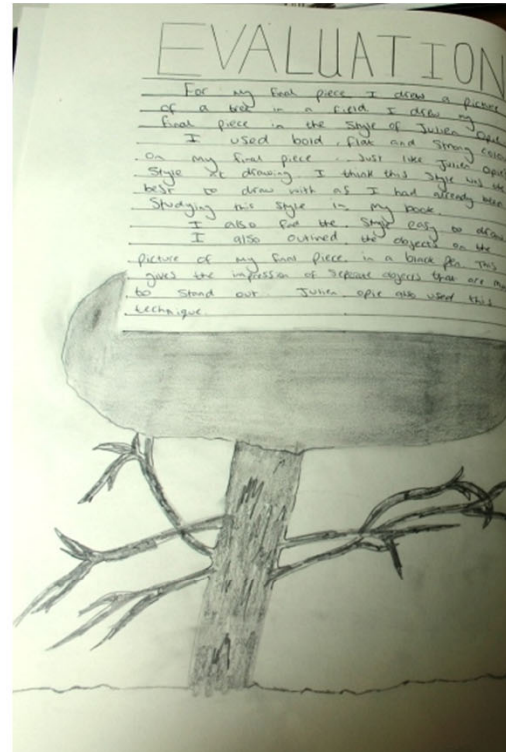 EVALUATION
For my final piece I drew a picture
of a tree in a field I drew my
final piece in the style of Julien Opie
I used bold, flat and strong
on my final piece .. Just like Julien Opie
Style of drawing. I think this style was the
best to draw with as I had already been
Studying this style in my book.
I also find the style easy to draw
I also outlined the objects on the
picture of my final piece in a black pen. This
gives the impression of seperate objects that are
to stand out. Julien opie also used this
technique.